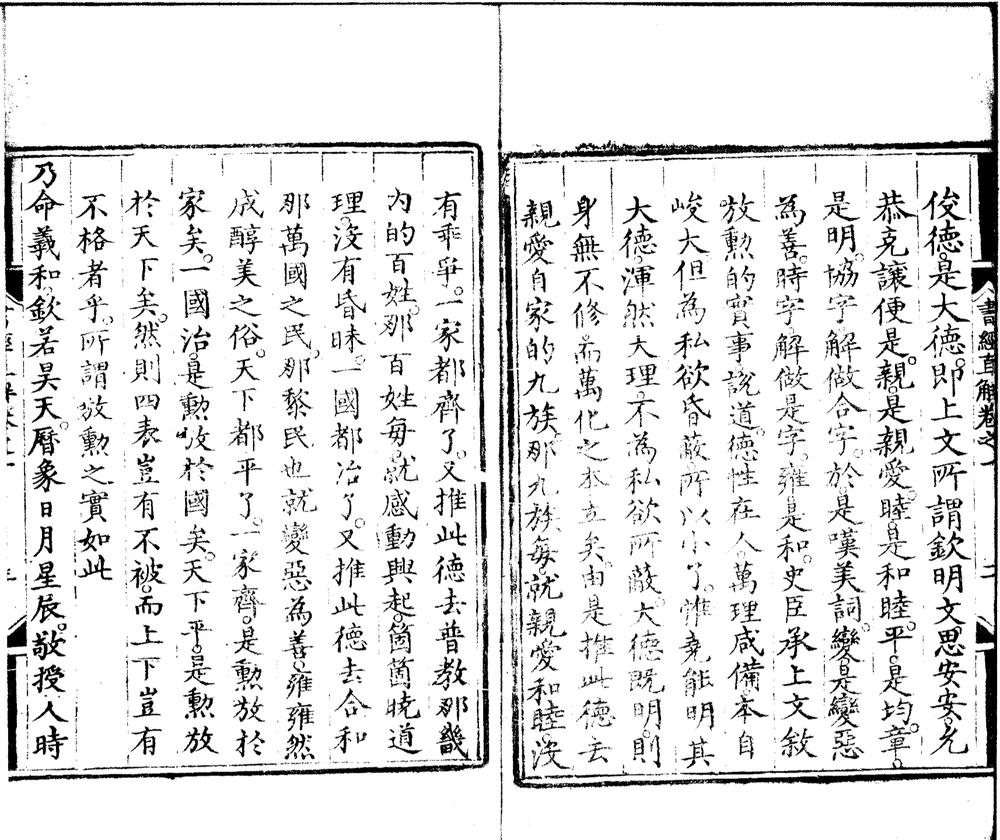 俊德。是大德。即上文所謂欽明文思安安。允
恭克讓便是。親是親愛。睦。是和睦。平。是均。章。
是明。協字。解做合字。於是嘆美詞。變。是變惡
為善。時字。解做是字。雍是和。史臣承上文敘
放勲的實事。說道。德性在人。萬理咸備。本自
峻大。但為私欲昏蔽。所以小了。惟堯能明其
大德。渾然大理。不為私欲所蔽。大德既明。則
身無不修。而萬化之本立矣。由是推此德去
親愛自家的九族。那九族每就親愛和睦。沒
書經直解卷之一
二
有乖爭。一家都齊了。又推此德去普教那畿
内的百姓。那百姓每。就感動興起。箇箇曉道
理。沒有昏昧。一國都治了。又推此德去合和
那萬國之民。那黎民也就變惡為善。雍雍然
成醇美之俗。天下都平了。一家齊。是勲放於
家矣。一國治。是勲放於國矣。天下平。是勲放
於天下矣。然則四表豈有不被。而上下豈有
不格者乎。所謂放勲之實如此
乃命羲和。欽若昊天。曆象日月星辰。敬授人時